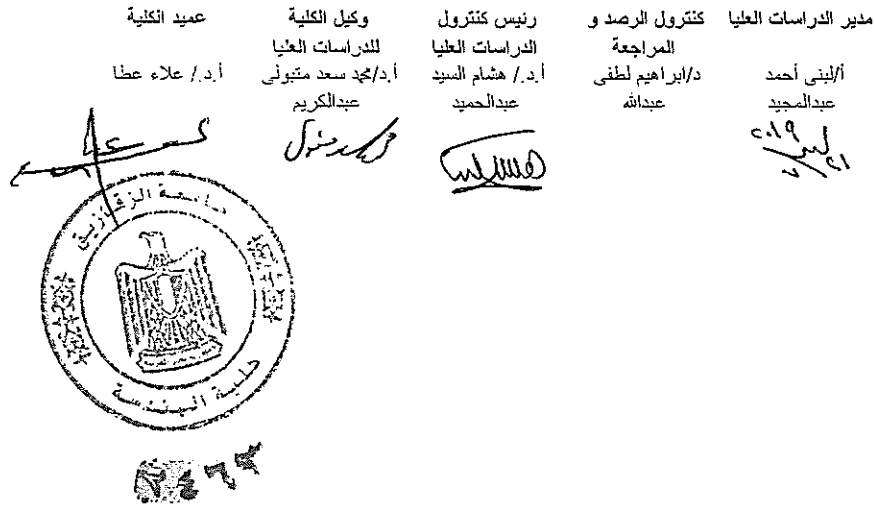 مدير الدراسات العليا
أ/لبنى أحمد
عبدالمجيد
كنترول الرصد و
المراجعة
د/ابراهيم لطفى
عبدالله
رئيس كنترول
الدراسات العليا
أ.د./ هشام السيد
عبدالحميد
وكيل الكلية
للدراسات العليا
أ.د/محمد سعد متبولى
عبدالكريم
عميد الكلية
أ.د./ علاء عطا
٢٠١٩
جامعة الزقازيق
كلية الهندسة